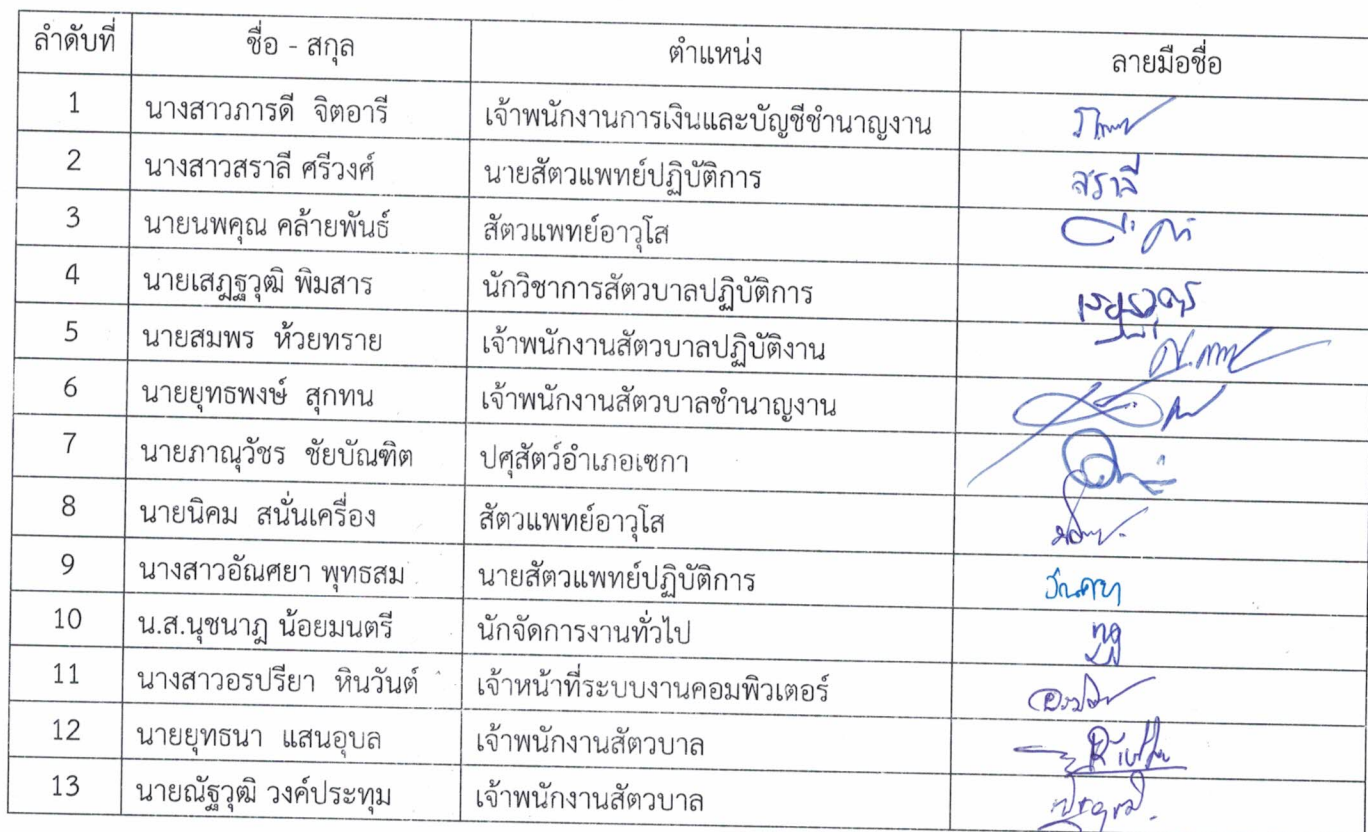 ลำดับที่ ชื่อ - สกุล ตำแหน่ง ลายมือชื่อ
1 นางสาวภารดี จิตอารี เจ้าพนักงานการเงินและบัญชีชำนาญงาน
2 นางสาวสราลี ศรีวงศ์ นายสัตวแพทย์ปฏิบัติการ สราลี
3 นายนพคุณ คล้ายพันธ์ สัตวแพทย์อาวุโส
4 นายเสฎฐวุฒิ พิมสาร นักวิชาการสัตวบาลปฏิบัติการ
5 นายสมพร ห้วยทราย เจ้าพนักงานสัตวบาลปฏิบัติงาน
6 นายยุทธพงษ์ สุกทน เจ้าพนักงานสัตวบาลชำนาญงาน
7 นายภาณุวัชร ชัยบัณฑิต ปศุสัตว์อำเภอเซกา
8 นายนิคม สนั่นเครื่อง สัตวแพทย์อาวุโส
9 นางสาวอัณศยา พุทธสม นายสัตวแพทย์ปฏิบัติการ อัณศยา
10 น.ส.นุชนาฎ น้อยมนตรี นักจัดการงานทั่วไป
11 นางสาวอรปรียา หินวันต์ เจ้าหน้าที่ระบบงานคอมพิวเตอร์
12 นายยุทธนา แสนอุบล เจ้าพนักงานสัตวบาล
13 นายณัฐวุฒิ วงค์ประทุม เจ้าพนักงานสัตวบาล